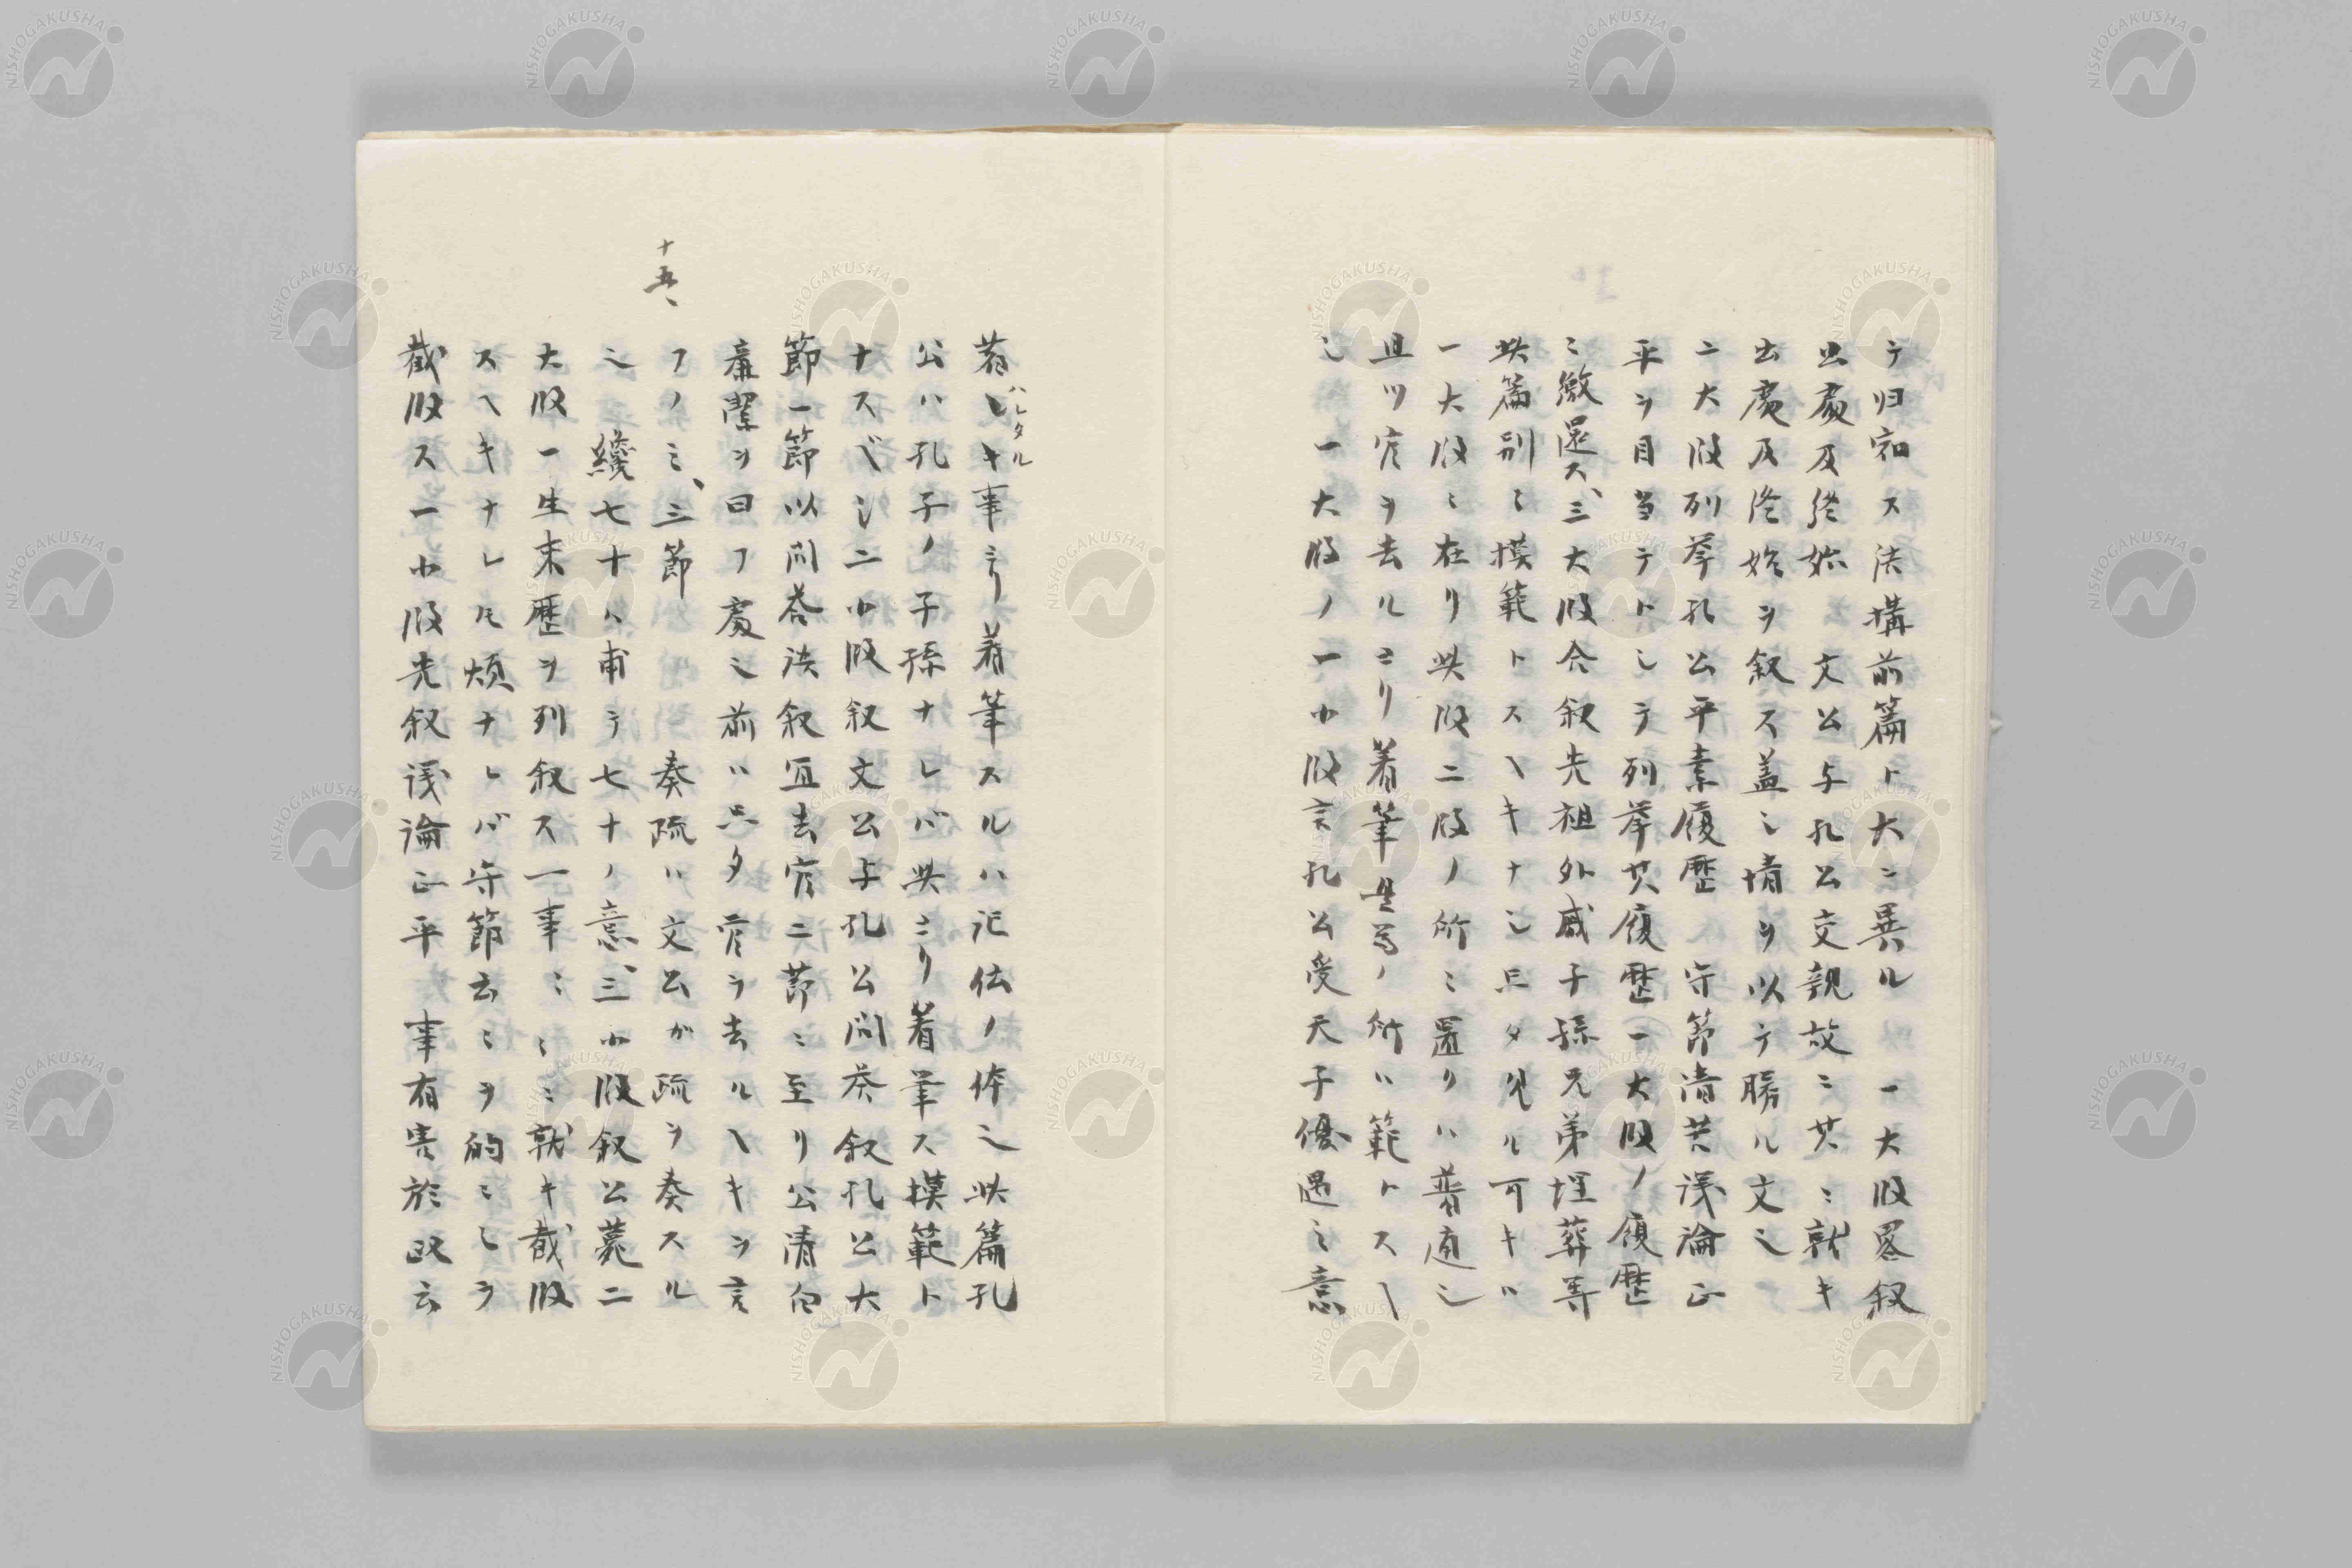 テ归宿ス法構前篇ト大ニ異ル 一大段畧叙
出處及終始 文公与孔公交親故ニ其ニ就キ
出處及終始ヲ叙ス蓋シ情ヲ以テ勝ル文也
二大段列挙孔公平素履歴 守節清苦議論正
平ヲ目当テトシテ列挙其履歴一大段ノ履歴
ニ繳還ス、三大段合叙先祖外戚子孫兄弟埋葬等
此篇別ニ模範トスヘキナシ只タ見ル可キハ
一大段ニ在リ此段二段ノ所ニ置クハ普通也
且ツ官ヲ去ルヨリ着筆是等ノ所ハ範トスヘ
シ 一大段ノ一小段言孔公受天子優遇之意
着シキ事ヨリ着筆スルハ記伝ノ体也此篇孔
ハレタル
公ハ孔子ノ子孫ナレバ此ヨリ着筆ス模範ト
ナスベシ二小段叙文公与孔公問答叙孔公大
節一節以問答法叙宜去官二節ニ至リ公清白
廉潔ヲ曰フ處也前ハ只タ官ヲ去ルヘキヲ言
フノミ、三節 奏疏ハ文公が疏ヲ奏スル
十五、
也 纔七十ハ甫テ七十ノ意、三小段叙公薨二
大段一生末歴ヲ列叙ス一事ニ〻ニ就キ截段
スヘキナレ𪜈煩ナレバ守節云ミヲ的ニシテ
截段ス一小段先叙議論正平 事有害於政云